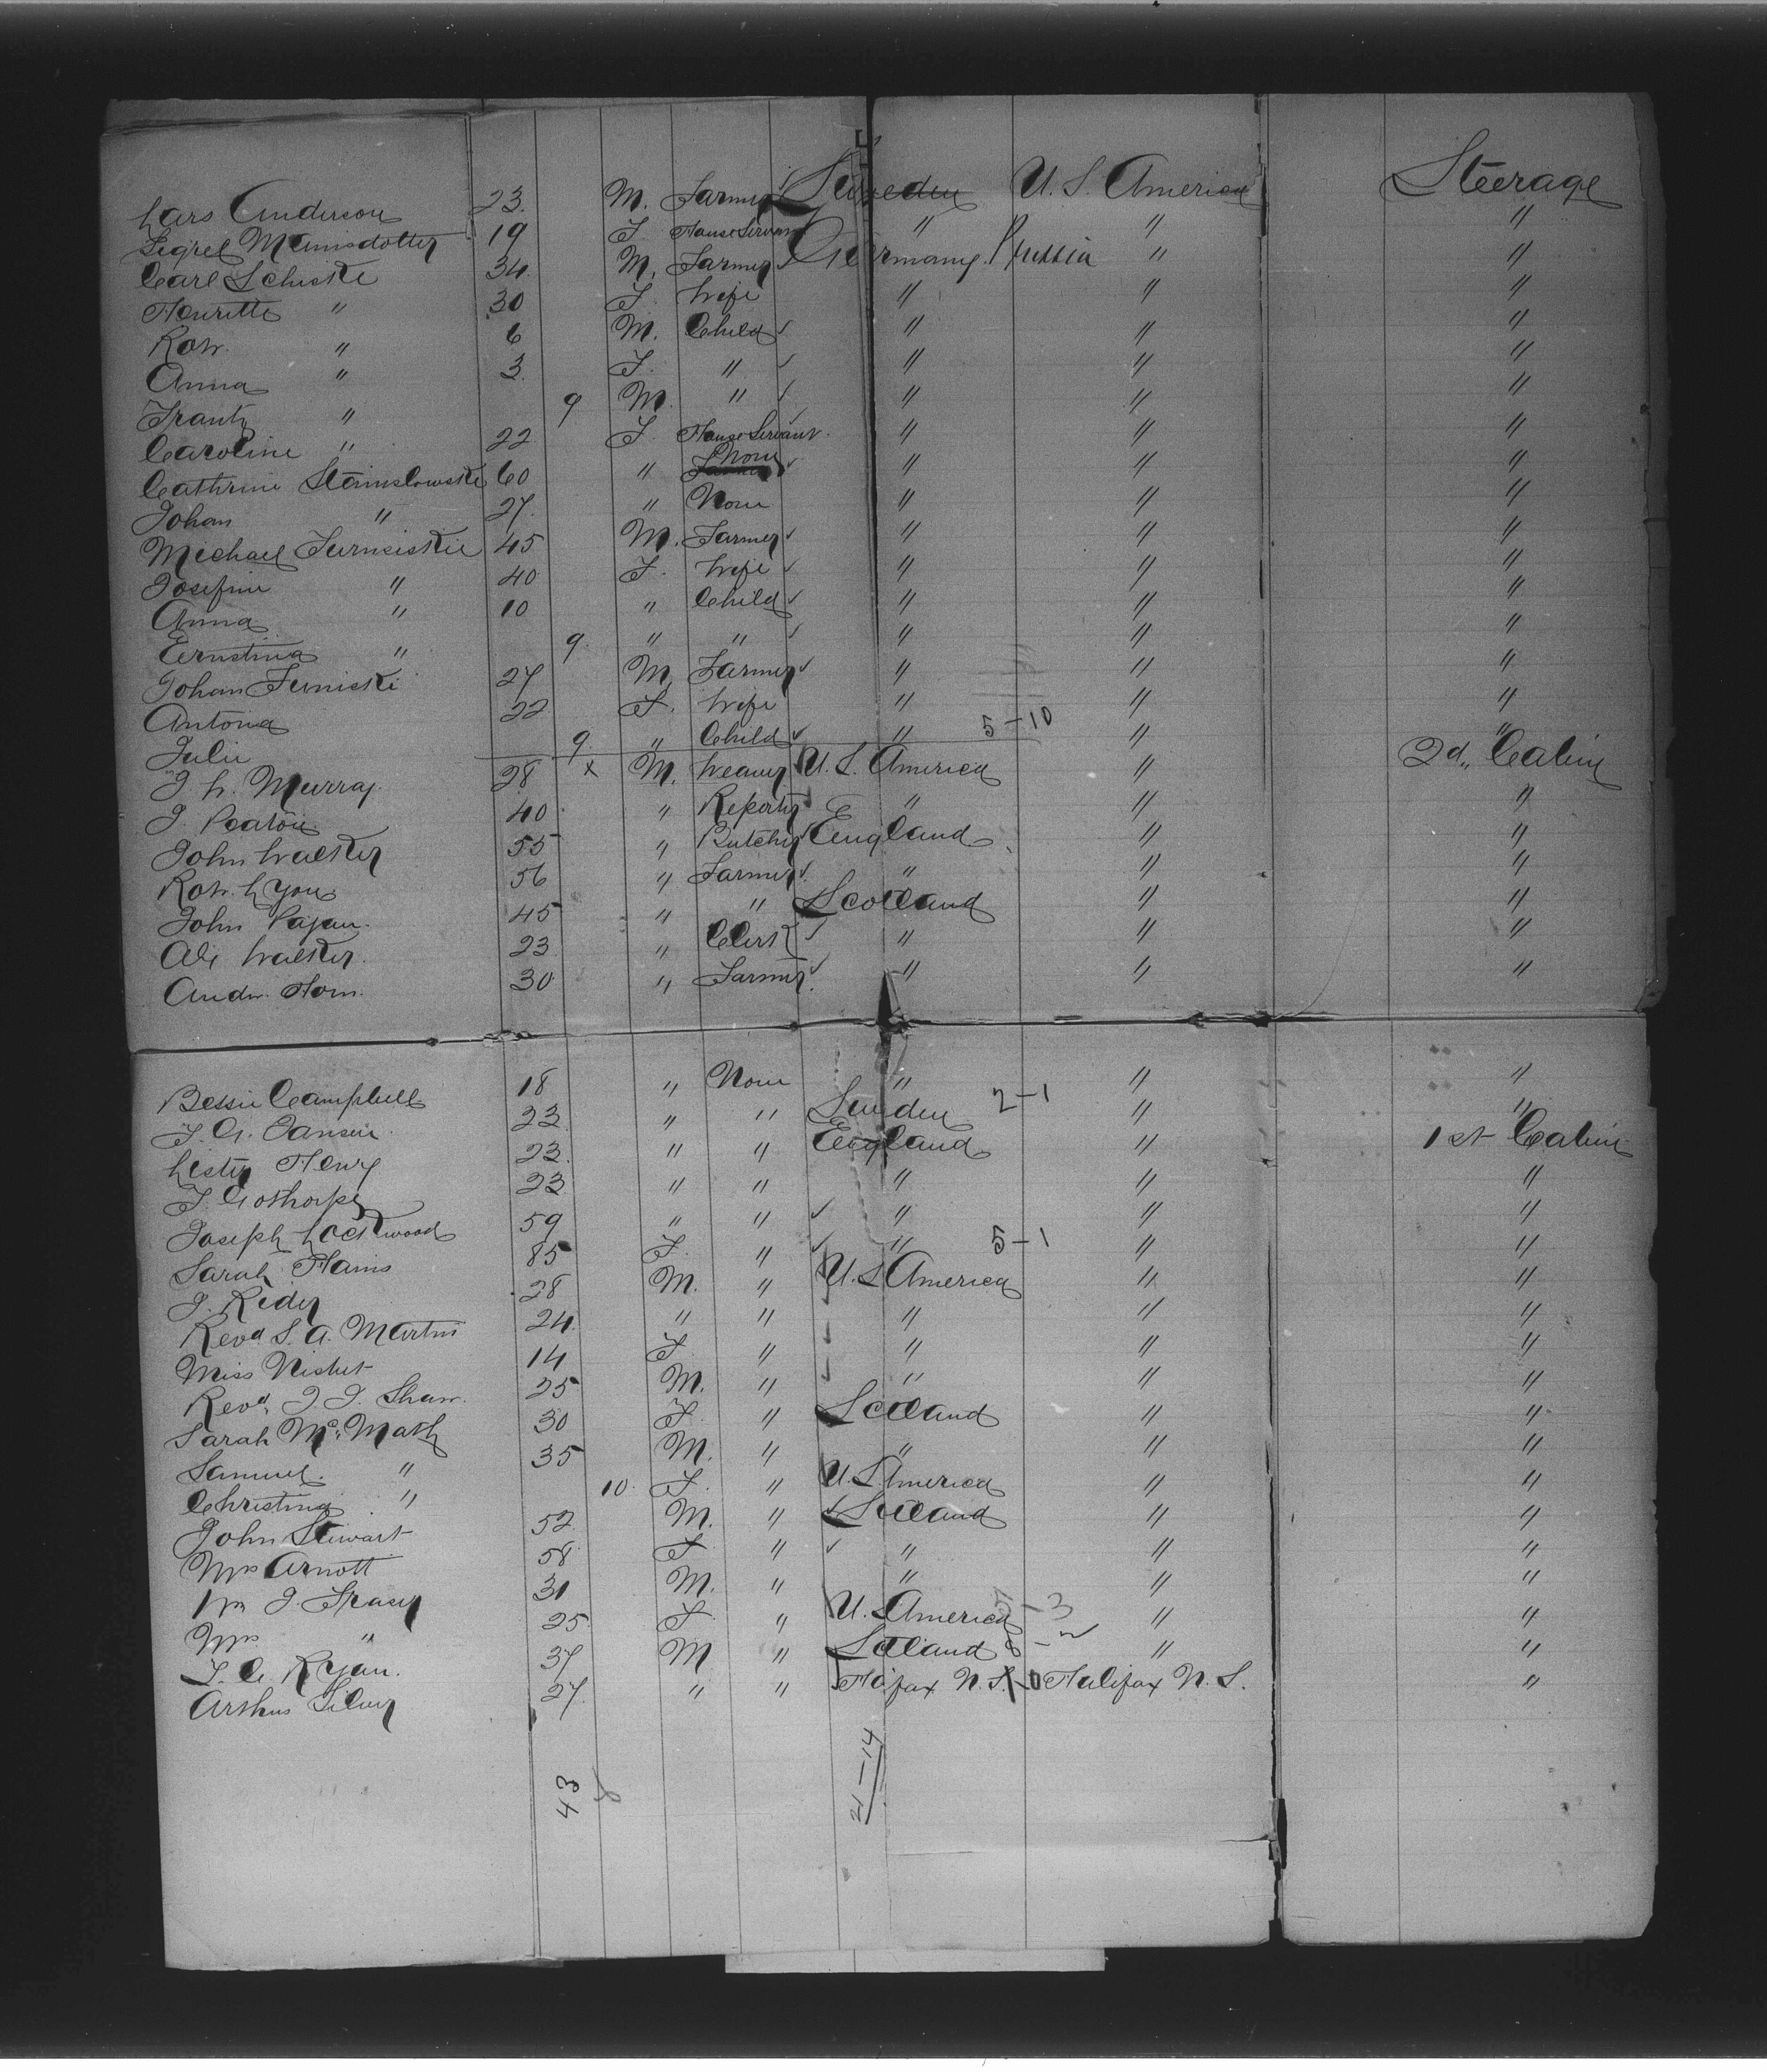 Lars Anderson 23. M. Farmer Sweden U. S. America Steerage
Sigrel Mansdotter 19 F House Servant " " "
Carl Schiske 34 M. Farmer Germany. Prussia " "
Henritte " 30 F. Wife " " "
Robt. " 6 M. Child " " "
Anna " 3 F. " " " "
Frantz " 9 M " " " "
Caroline " 22 F. House Servant. " " "
Cathrine Stanislowske 60 " None " " "
Johan " 27. " None " " "
Michael 45 M. Farmer " " "
Josefine " 40 F. Wife " " "
Anna " 10 " Child " " "
Ernstina " 9. " " " " "
Johan 27 M. Farmer " " "
Antona 22 F. Wife " " "
Julie 9. " Child " 5-10 " "
J. L. Murray. 28 x M. Weaver U. S. America " 2d,, Cabin
J. Peaton 40 " Reporter " " "
John Walker 55 " Butcher England " "
Robt. Lyons 56 " Farmer " " "
John Pajan. 45 " " Scotland " "
Alex Walker. 23 " Clerk " " "
Andw. Tom. 30 " Farmer. " " "
Bessie Campbell 18 " None " " "
F. G. Jansen. 22 " " Sweden 2-1 " "
Lester Henry 23. " " England " 1st Cabin
T. Gothorpe 23 " " " " "
Joseph Lockwood 59 " " " " "
Sarah Hains 85 F. " " 5-1 " "
J. Reder 28 M. " U. S. America " "
Revd S. A. Martin 24. " " " " "
Miss Nisbet 14 F. " " " "
Revd. J. J. Shaw. 25 M. " " " "
Sarah Mc. Math 30 F. " Scotland " "
Samuel. " 35 M. " " " "
Christina " 10. F. " U. S. America " "
John Stewart 52 M. " Scotland " "
Mrs Arnott 58 F " " " "
Wm J. Fraser 31 M. " " " "
Mrs " 25. F. " U. S. America 5-3 " "
T. C. Ryan. 37 M " Scotland 8-2 " "
Arthur Silver 27. " " Halifax N. S. Halifax N. S. "
43
21-14